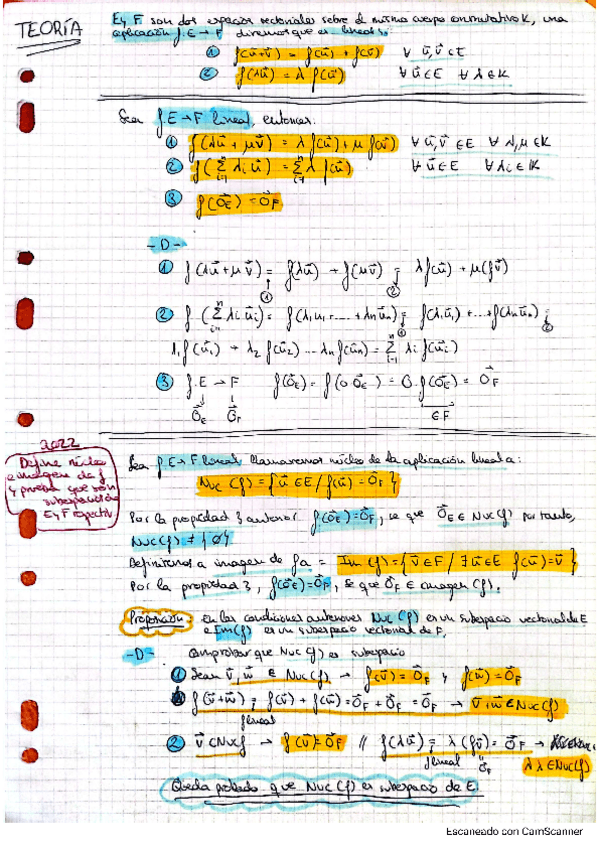 TEORÍA
E y F son dos espacios vectoriales sobre el mismo cuerpo conmutativo K, una
aplicación f: E → F diremos que es lineal si:
① f(u⃗+v⃗) = f(u⃗) + f(v⃗) ∀ u⃗, v⃗ ∈ E
② f(λu⃗) = λ f(u⃗) ∀ u⃗ ∈ E ∀ λ ∈ K
Sea f: E → F lineal, entonces:
① f(λu⃗ + μv⃗) = λ f(u⃗) + μ f(v⃗) ∀ u⃗, v⃗ ∈ E ∀ λ, μ ∈ K
② f(∑ⁿᵢ₌₁ λi u⃗) = ∑ⁿᵢ₌₁ λ f(u⃗) ∀ u⃗ ∈ E ∀ λi ∈ K
③ f(0⃗E) = 0⃗F
- D -
① f(λu⃗ + μv⃗) = f(λu⃗) + f(μv⃗) = λ f(u⃗) + μ(f v⃗)
① ②
② f(∑ⁿᵢ₌₁ λi u⃗i) = f(λ1 u1 + .... + λn u⃗n) = f(λ1 u⃗1) + ... + f(λn u⃗n) =
① ②
λ1 f(u⃗1) + λ2 f(u⃗2) ... λn f(u⃗n) = ∑ⁿᵢ₌₁ λi f(u⃗i)
③ f: E → F f(0⃗E) = f(0·0⃗E) = 0·f(0⃗E) = 0⃗F
0⃗E 0⃗F ∈ F
2022
Define núcleo
e imagen de f
y prueba que son
subespacios de
E y F respectiv
Sea f: E → F lineal llamaremos núcleo de la aplicación lineal a:
Nuc (f) = { u⃗ ∈ E / f(u⃗) = 0⃗F }
Por la propiedad 3 anterior f(0⃗E) = 0⃗F, se que 0⃗E ∈ Nuc(f) por tanto,
Nuc(f) ≠ {∅}
Definiremos a imagen de f a = Im (f) = { v⃗ ∈ F / ∃ u⃗ ∈ E f(u⃗) = v⃗ }
Por la propiedad 3, f(0⃗E) = 0⃗F, se que 0⃗F ∈ imagen (f).
Proposición: En las condiciones anteriores Nuc (f) es un subespacio vectorial de E
e Im(f) es un subespacio vectorial de F.
- D - Comprobar que Nuc (f) es subespacio
① Sean v⃗, w⃗ ∈ Nuc(f) → f(v⃗) = 0⃗F y f(w⃗) = 0⃗F
f(v⃗+w⃗) = f(v⃗) + f(w⃗) = 0⃗F + 0⃗F = 0⃗F → v⃗+w⃗ ∈ Nuc(f)
f lineal
② v⃗ ∈ Nuc f → f(v⃗) = 0⃗F // f(λu⃗) = λ(f v⃗) = 0⃗F →
f lineal 0⃗F λλ ∈ Nuc(f)
Queda probado que Nuc (f) es subespacio de E
Escaneado con CamScanner